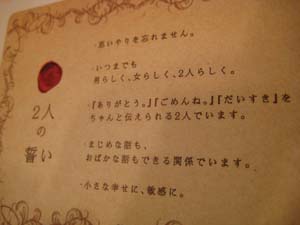 2人の誓い
・思いやりを忘れません。
・いつまでも
男らしく、女らしく、2人らしく。
・『ありがとう。』『ごめんね。』『だいすき』を
ちゃんと伝えられる2人でいます。
・まじめな話も、
おばかな話もできる関係でいます。
・小さな幸せに、敏感に。